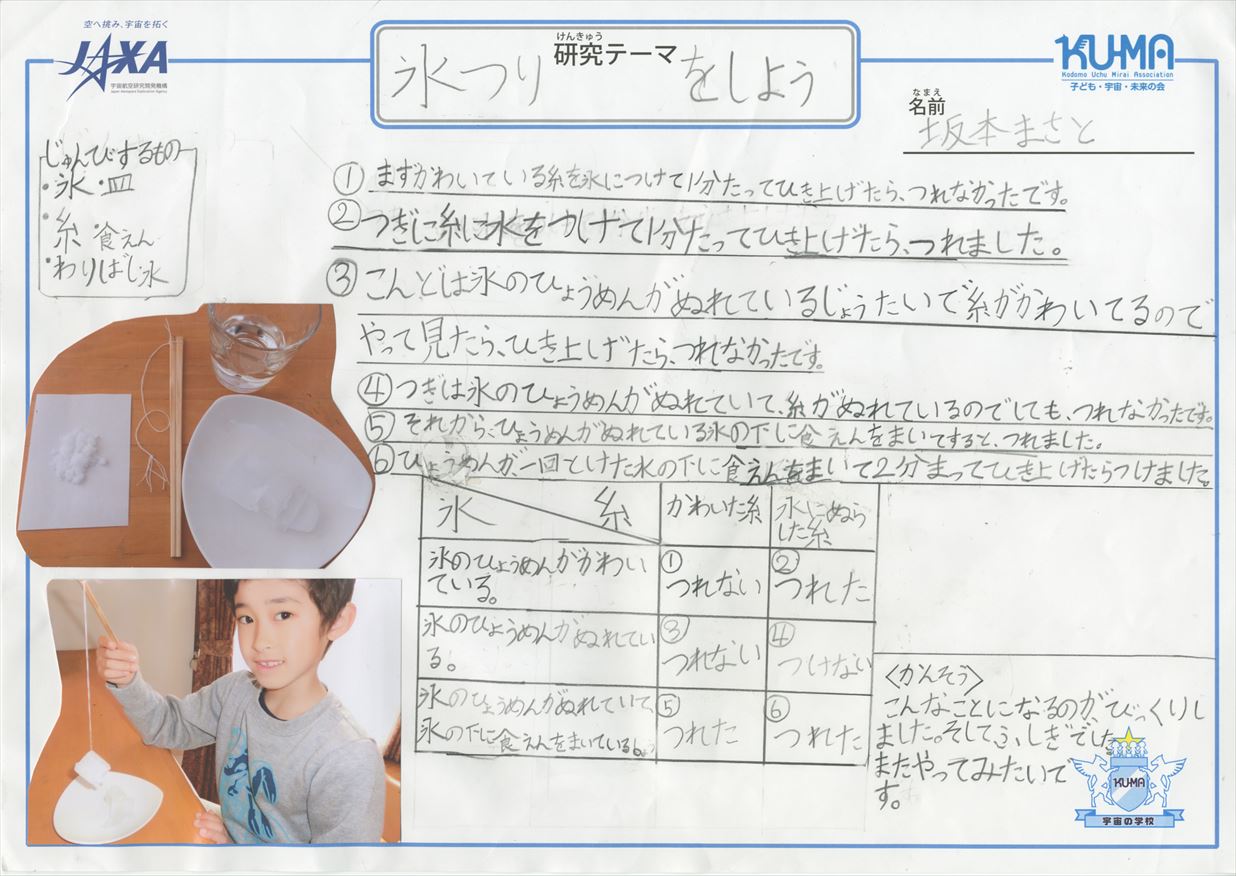 空へ挑み、宇宙を拓く
JAXA
宇宙航空研究開発機構
Japan Aerospace Exploration Agency
けんきゅう
研究テーマ
氷つり をしよう
KU-MA
Kodomo Uchu Mirai Association
子ども・宇宙・未来の会
なまえ
名前
坂本まさと
じゅんびするもの
・氷・皿
・糸・食えん
・わりばし水
①まずかわいている糸を氷につけて1分たってひき上げたら、つれなかったです。
②つぎに糸に水をかけて1分たってひき上げたら、つれました。
③こんどは氷のひょうめんがぬれているじょうたいで糸がかわいてるので
やって見たら、ひき上げたら、つれなかったです。
④つぎは氷のひょうめんがぬれていて、糸がぬれているのでしても、つれなかったです。
⑤それから、ひょうめんがぬれている氷の下に食えんをまいてすると、つれました。
⑥ひょうめんが一回とけた氷の下に食えんをまいて2分まってひき上げたらつけました。
氷 糸 かわいた糸 水にぬら
した糸
氷のひょうめんがかわい
ている。
①
つれない
②
つれた
氷のひょうめんがぬれてい
る。
③
つれない
④
つけない
氷のひょうめんがぬれていて、
氷の下に食えんをまいている
⑤
つれた
⑥
つれた
〈かんそう〉
こんなことになるのが、びっくりし
ました。そしてふしぎでした。
またやってみたいで
す。
KU-MA
宇宙の学校